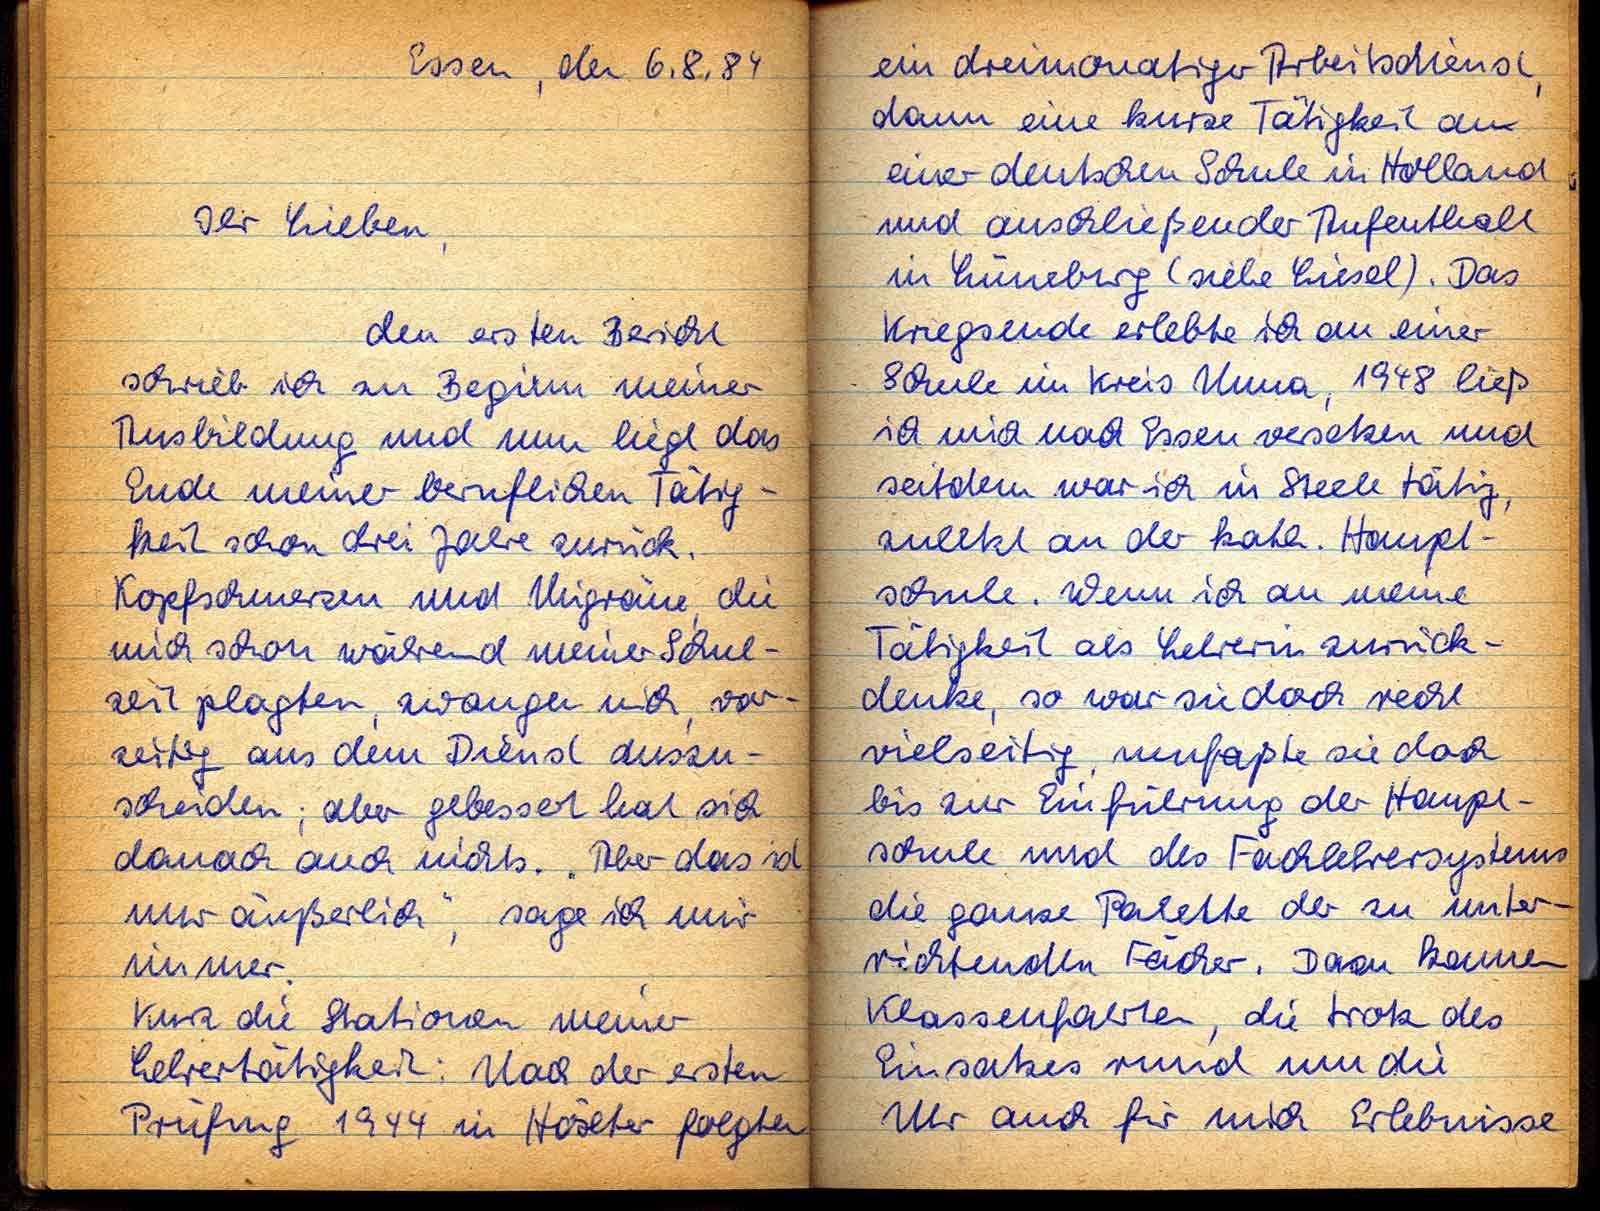 Essen, den 6.8.84
Ihr Lieben,
den ersten Bericht
schrieb ich zu Beginn meiner
Ausbildung und nun liegt das
Ende meiner beruflichen Tätig-
keit schon drei Jahre zurück.
Kopfschmerzen und Migräne, die
mich schon während meiner Schul-
zeit plagten, zwangen mich, vor-
zeitig aus dem Dienst auszu-
scheiden; aber gebessert hat sich
danach auch nichts. „Aber das ist
nur äußerlich", sage ich mir
immer.
Kurz die Stationen meiner
Lehrertätigkeit: Nach der ersten
Prüfung 1944 in Höxter folgten
ein dreimonatiger Arbeitsdienst,
dann eine kurze Tätigkeit an
einer deutschen Schule in Holland
und anschließender Aufenthalt
in Lüneburg (siehe Liesel). Das
Kriegsende erlebte ich an einer
Schule im Kreis Unna, 1948 ließ
ich mich nach Essen versetzen und
seitdem war ich in Steele tätig,
zuletzt an der kath. Haupt-
schule. Wenn ich an meine
Tätigkeit als Lehrerin zurück-
denke, so war sie doch recht
vielseitig, umfaßte sie doch
bis zur Einführung der Haupt-
schule und des Fachlehrersystems
die ganze Palette der zu unter-
richtenden Fächer. Dazu kamen
Klassenfahrten, die trotz des
Einsatzes rund um die
Uhr auch für mich Erlebnisse